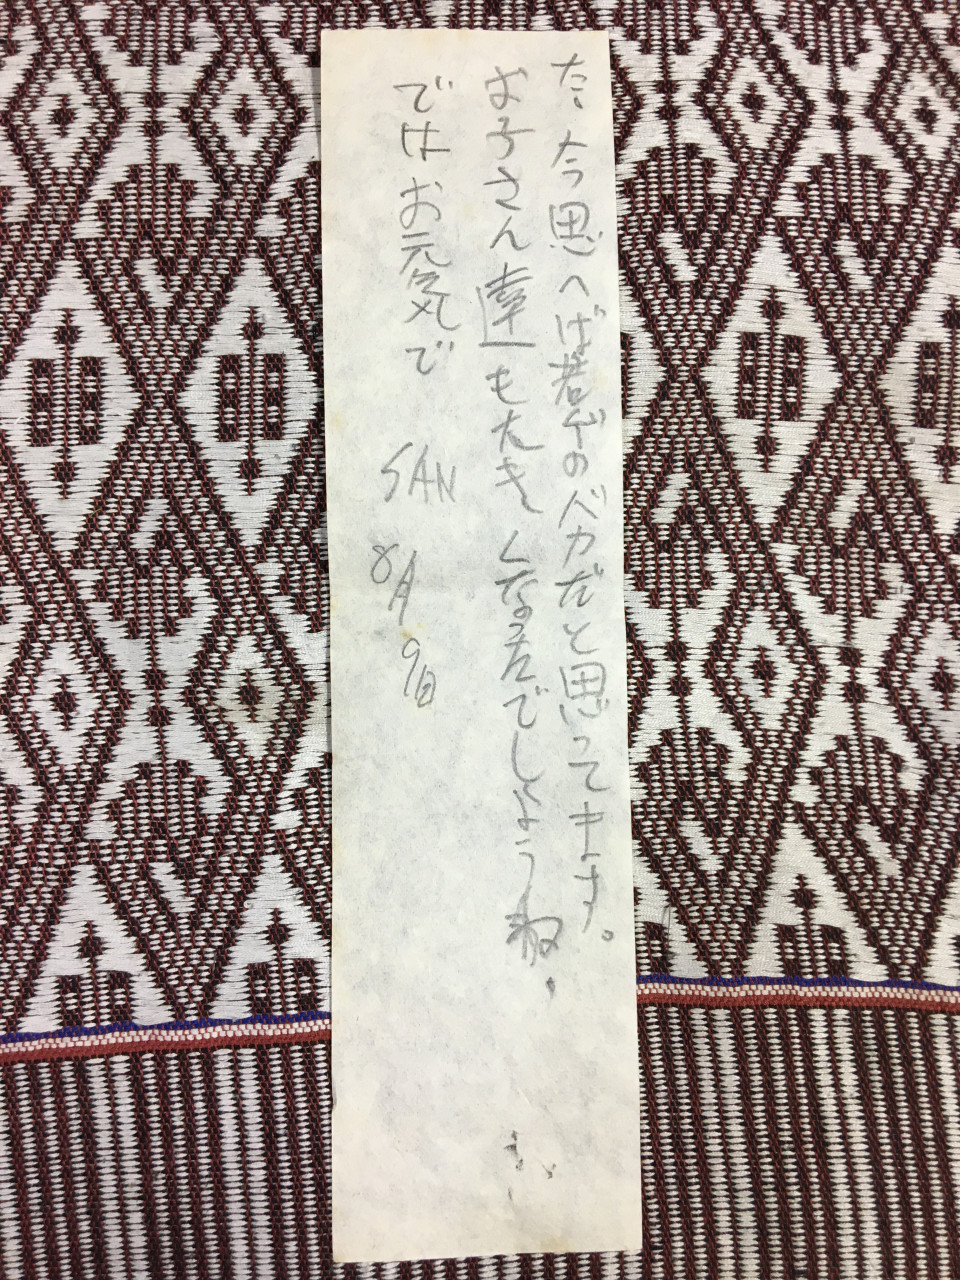 た、今思へば若気のバカだと思ってます。
お子さん達もたきくなったでしょうね、
ではお元気で SAN 8/9日